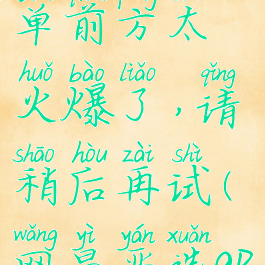 单前方太
huǒ bào liǎo qǐng
火爆了,请
shāo hòu zài shì
稍后再试(
wǎng yì yán xuǎn
网易严选OP